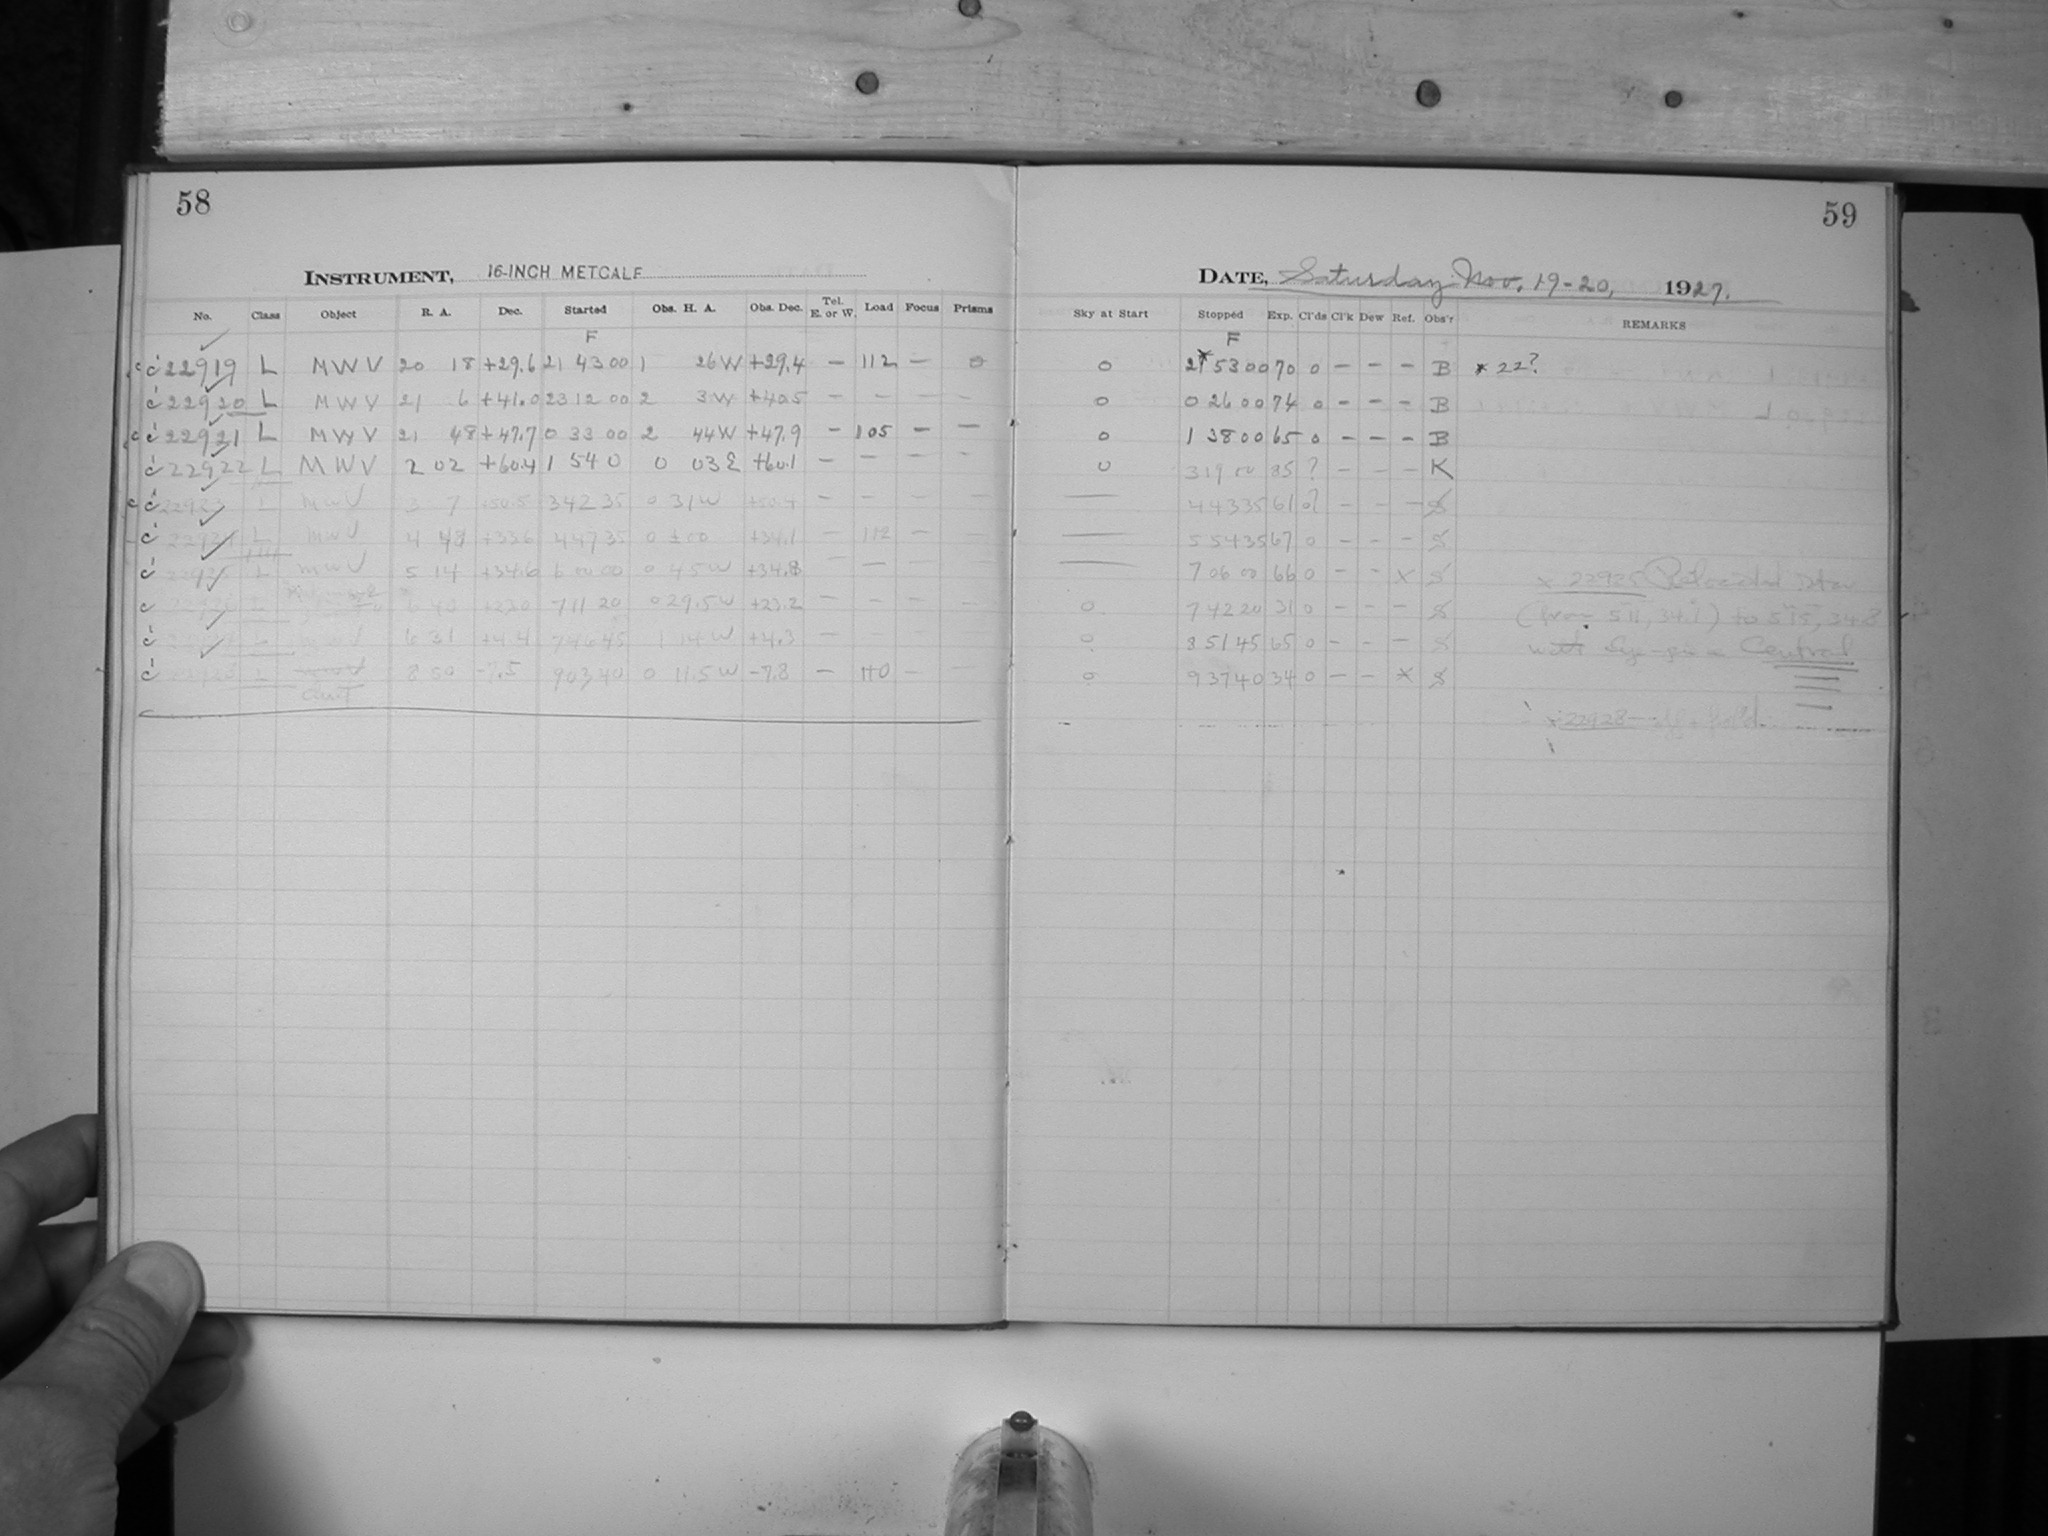 58
59
INSTRUMENT, 16-INCH METCALF
DATE, Saturday Nov. 19-20, 1927.
No. Class Object R. A. Dec. Started Obs. H. A. Obs. Dec. Tel. E. or W. Load Focus Prisms Sky at Start Stopped Exp. Cl'ds Cl'k Dew Ref. Obs'r REMARKS
F F
22919 L MWV 20 18 +29.6 21 43 00 1 26W +29.4 — 112 — 0 0 21* 53 00 70 0 — — — B * 22?
22920 L MWV 21 6 +41.0 23 12 00 2 3W +40.5 — — — — 0 0 26 00 74 0 — — — B
22921 L MWV 21 48 +47.7 0 33 00 2 44W +47.9 — 105 — — 0 1 38 00 65 0 — — — B
22922 L MWV 2 02 +60.4 1 54 0 0 03E +60.1 — — — — 0 3 19 00 85 ? — — — K
22923 L MWV 3 7 +50.5 3 42 35 0 31W +50.4 — — — — — 4 43 35 61 0? — — — S
22924 L MWV 4 48 +33.6 4 47 35 0 ±00 +34.1 — 112 — — — 5 54 35 67 0 — — — S
22925 L MWV 5 14 +34.6 6 00 00 0 45W +34.8 — — — — — 7 06 00 66 0 — — x S
x 22925
L 7 11 20 0 29.5W +23.2 — — — — 0 7 42 20 31 0 — — — S
(from 5 11, 34.1) to 5 15, 34.8
L MWV 6 31 +4.4 7 46 45 1 14W +4.3 — — — — 0 8 51 45 65 0 — — — S
with Central
22928 L 8 50 -7.5 9 03 40 0 11.5W -7.8 — 110 — — 0 9 37 40 34 0 — — x S
x 22928